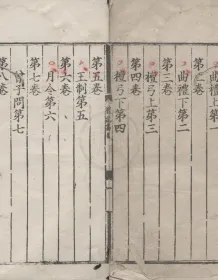 曲禮下第二
第三卷
檀弓上第三
第四卷
檀弓下第四
第五卷
王制第五
第六卷
月令第六
第七卷
曾子問第七
第八卷